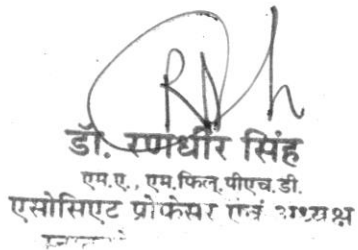 डॉ. रणधीर सिंह
एम.ए., एम.फिल. पीएच.डी.
एसोसिएट प्रोफेसर एवं अध्यक्ष